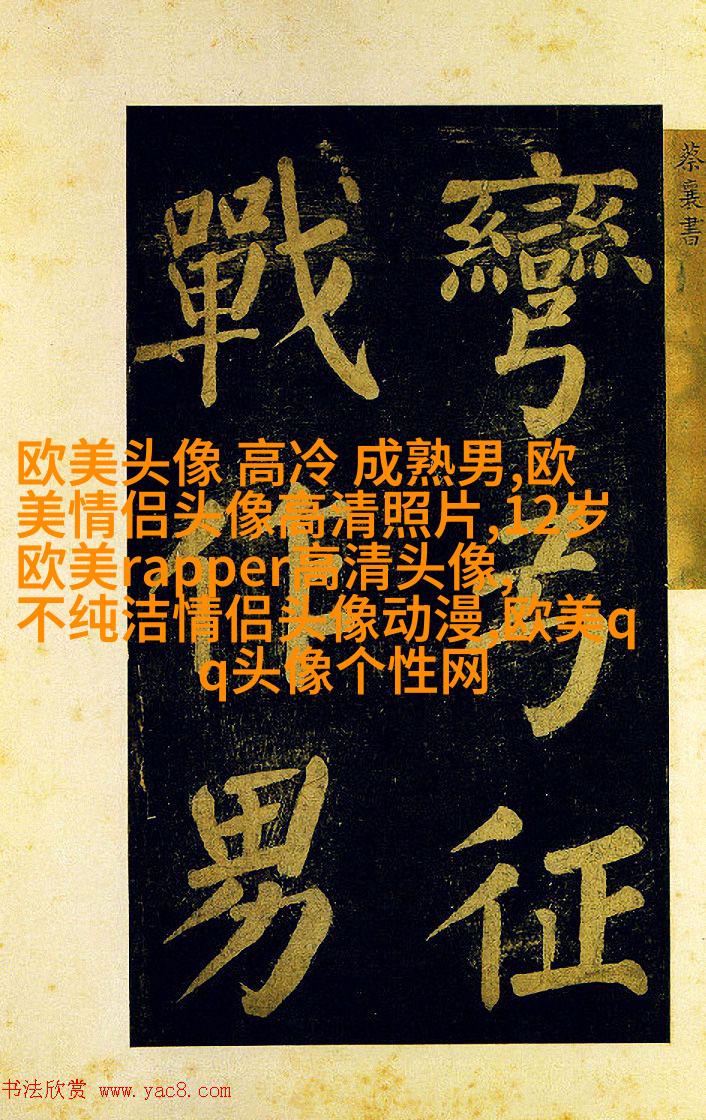 蔡襄書
彎弓征
戰作男
欧美头像 高冷 成熟男,欧
美情侣头像高清照片,12岁
欧美rapper高清头像,
不纯洁情侣头像动漫,欧美q
q头像个性网
书法欣赏 www.yac8.com